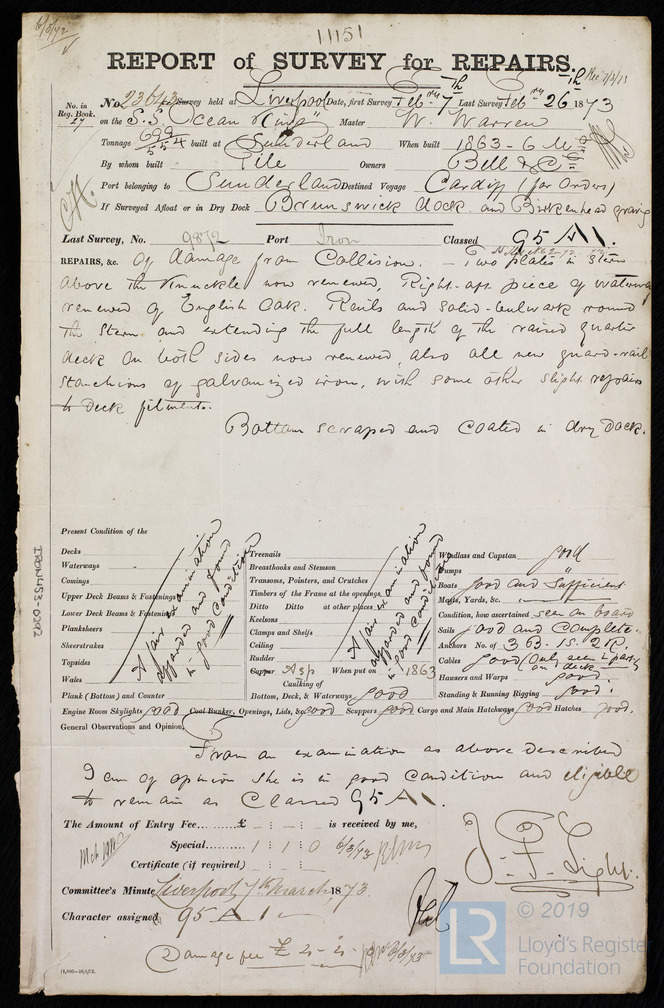 6/3/72
11151
REPORT of SURVEY for REPAIRS.
No. in Reg. Book. 27
No. 23643 Survey held at Liverpool Date, first Survey Feb ry 7th Last Survey Feb ry 26th 1873
on the S.S. "Ocean King" Master W. Warren
Tonnage 699 / 554 built at Sunderland When built 1863 - 6 Mo
By whom built Pile Owners Bell & Co
Port belonging to Sunderland Destined Voyage Cardiff (for Orders)
If Surveyed Afloat or in Dry Dock Brunswick dock and Birkenhead graving
Last Survey, No. 9872 Port Iron Classed 95 A1.
REPAIRS, &c. Of damage from Collision. — Two plates in Stern
above the Knuckle now renewed, Right-aft piece of waterway
renewed of English Oak. Rails and solid-bulwark round
the Stern and extending the full length of the raised quarter
deck on both sides now renewed, also all new guard-rail
stanchions of galvanized iron, with some other slight repairs
to deck fitments.
Bottom scraped and coated in dry dock.
IRON453-0292
Present Condition of the
Decks
Waterways
Comings
Upper Deck Beams & Fastenings
Lower Deck Beams & Fastenings
Planksheers
Sheerstrakes
Topsides
Wales
Plank (Bottom) and Counter
A fair examination
afforded and found
in good condition
Treenails
Breasthooks and Stemson
Transoms, Pointers, and Crutches
Timbers of the Frame at the openings
Ditto Ditto at other places
Keelsons
Clamps and Shelfs
Ceiling
Rudder
Copper Asp When put on 1863
Caulking of
Bottom, Deck, & Waterways good
A fair examination
afforded and found
in good condition
Windlass and Capstan good
Pumps "
Boats good and Sufficient
Masts, Yards, &c.
Condition, how ascertained seen on board
Sails good and complete.
Anchors No. of 3 B. 1 S. 2 K.
Cables good (only seen in part on deck
Hawsers and Warps good.
Standing & Running Rigging good.
Engine Room Skylights good Coal Bunker, Openings, Lids, &c. good Scuppers good Cargo and Main Hatchways good Hatches good.
General Observations and Opinion,
From an examination as above described
I am of opinion she is in good condition and eligible
to remain as Classed 95 A1.
The Amount of Entry Fee.......... £ : : is received by me,
Special........ 1 : 1 : 0 6/3/73
Certificate (if required) : :
J. F. Light.
Committee's Minute Liverpool 7th March, 1873.
Character assigned 95 A 1
Damage fee £ 2 - 2 - 6/3/73
© 2019
LR
Lloyd's Register
Foundation